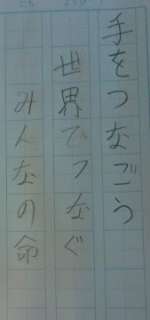 手をつなごう
世界でつなぐ
みんなの命